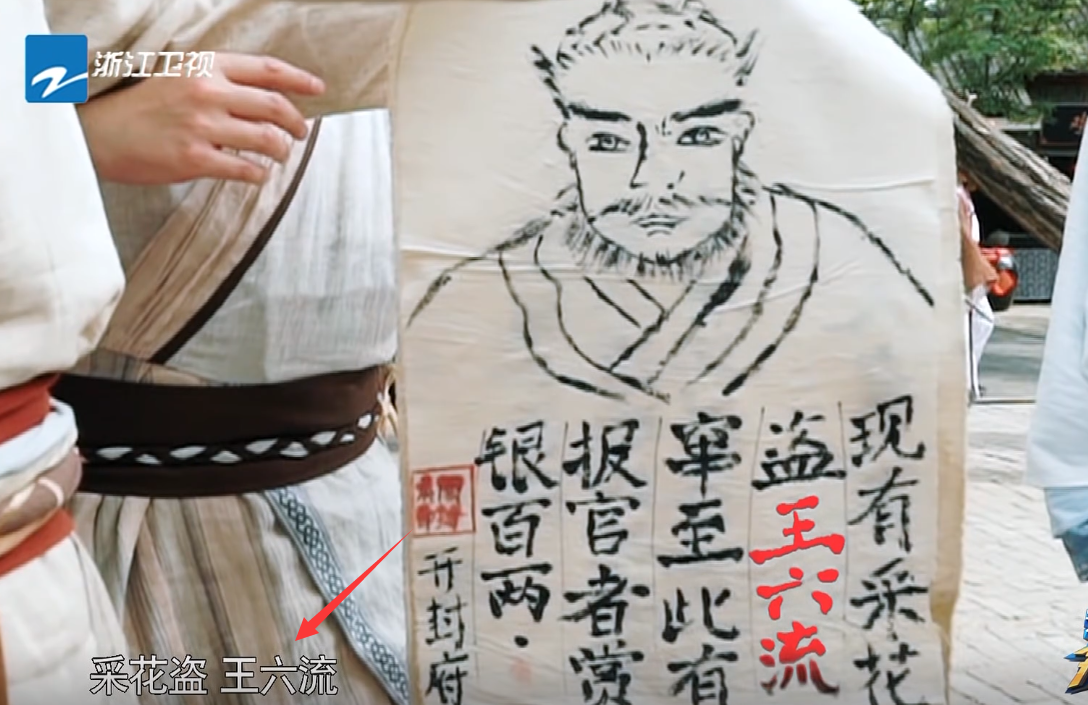 浙江卫视
现有采花
盗王六流
窜至此有
报官者赏
银百两.
开封府
采花盗 王六流